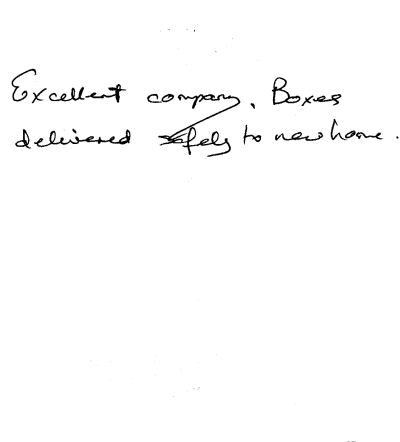 Excellent company. Boxes
delivered safely to new home.